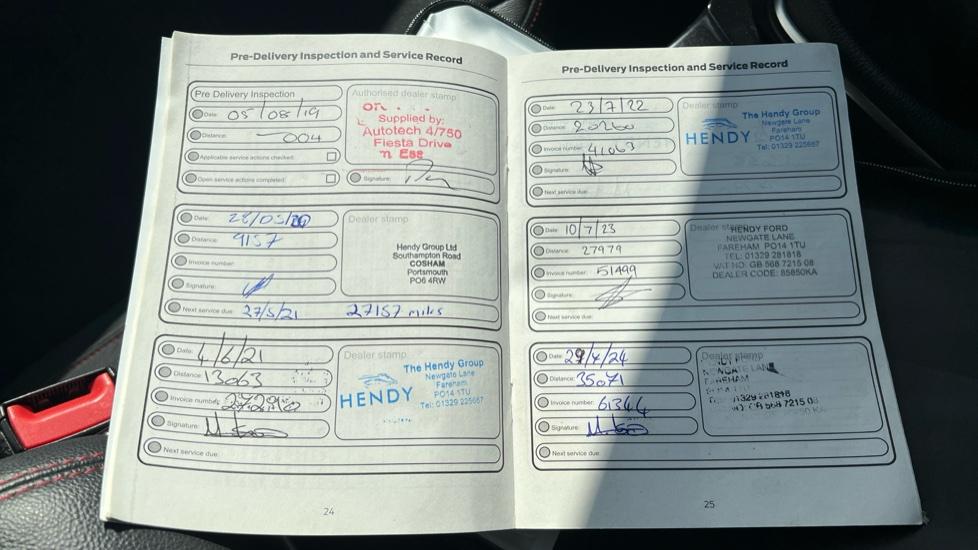 Pre-Delivery Inspection and Service Record
Pre Delivery Inspection
Date: 05/08/19
Distance: 004
Applicable service actions checked:
Open service actions completed:
Authorised dealer stamp
Supplied by:
Autotech 4/750
Fiesta Drive
Signature:
Date:
Distance: 9157
Invoice number:
Signature:
Next service due: 27/5/21 27157 miles
Dealer stamp
Hendy Group Ltd
Southampton Road
COSHAM
Portsmouth
PO6 4RW
Date: 4/6/21
Distance: 13063
Invoice number:
Signature:
Next service due:
Dealer stamp
HENDY
The Hendy Group
Newgate Lane
Fareham
PO14 1TU
Tel: 01329 225667
24
Pre-Delivery Inspection and Service Record
Date: 23/7/22
Distance: 20260
Invoice number: 41063
Signature:
Next service due:
Dealer stamp
HENDY
The Hendy Group
Newgate Lane
Fareham
PO14 1TU
Tel: 01329 225667
Date: 10/7/23
Distance: 27979
Invoice number: 51499
Signature:
Next service due:
Dealer stamp
HENDY FORD
NEWGATE LANE
FAREHAM PO14 1TU
TEL: 01329 281818
VAT NO: GB 568 7215 08
DEALER CODE: 85850KA
Date: 29/4/24
Distance: 35071
Invoice number: 61344
Signature:
Next service due:
Dealer stamp
NEWGATE LANE
FAREHAM
01329 281818
GB 568 7215 08
25